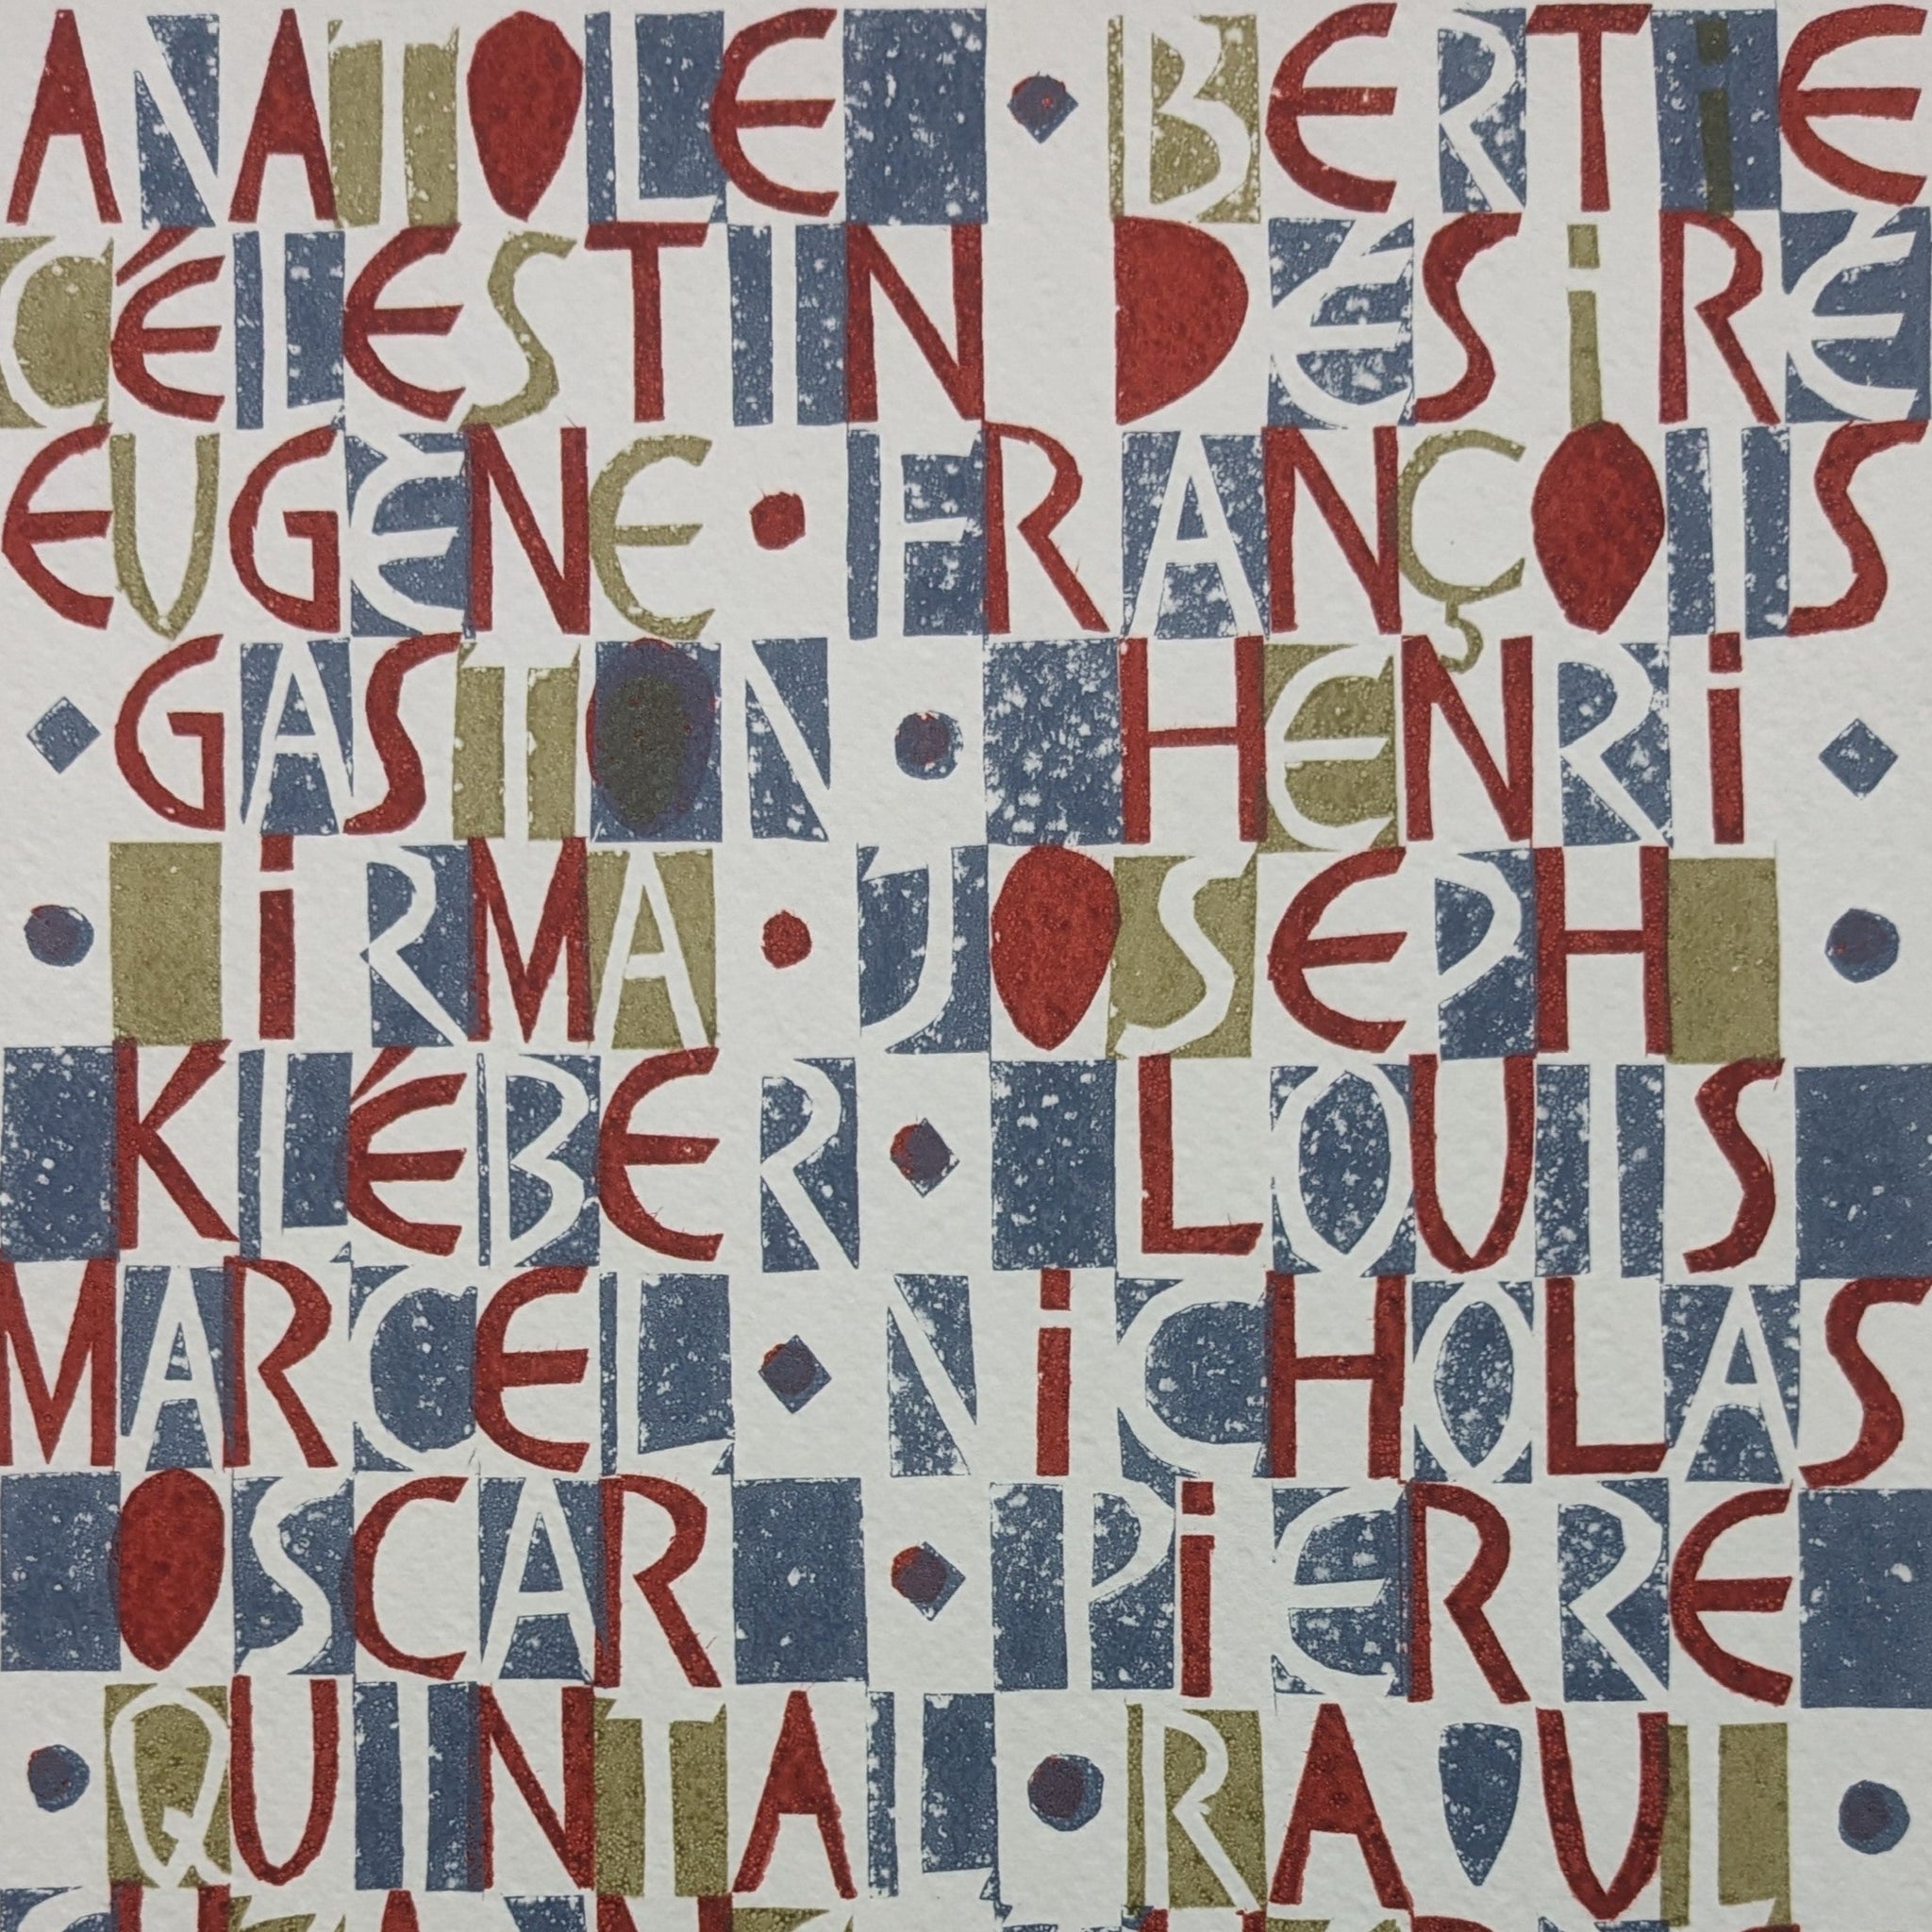 ANATOLE · BERTiE
CÉLESTIN DÉSiRÉ
EUGÈNE · FRANÇOIS
GASTON · HENRi
iRMA · JOSEPH
KLÉBER · LOUIS
MARCEL · NiCHOLAS
OSCAR · PiERRE
QUINTAL · RAOUL